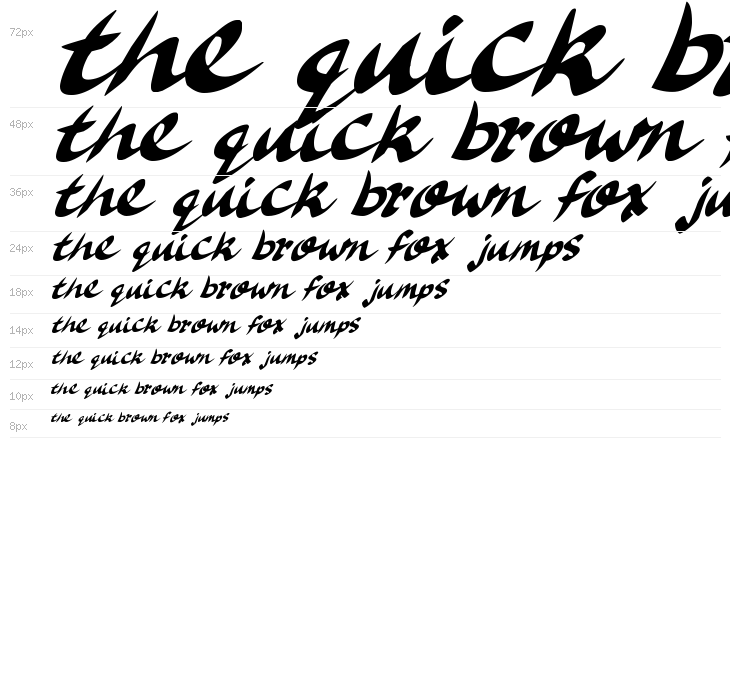 72px the quick br
48px the quick brown f
36px the quick brown fox ju
24px the quick brown fox jumps
18px the quick brown fox jumps
14px the quick brown fox jumps
12px the quick brown fox jumps
10px the quick brown fox jumps
8px the quick brown fox jumps